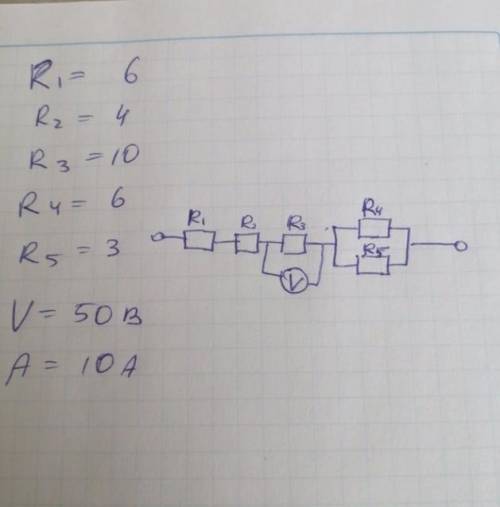 R1 = 6
R2 = 4
R3 = 10
R4 = 6
R5 = 3
V = 50 В
A = 10 А
R1 R2 R3 R4
R5
V